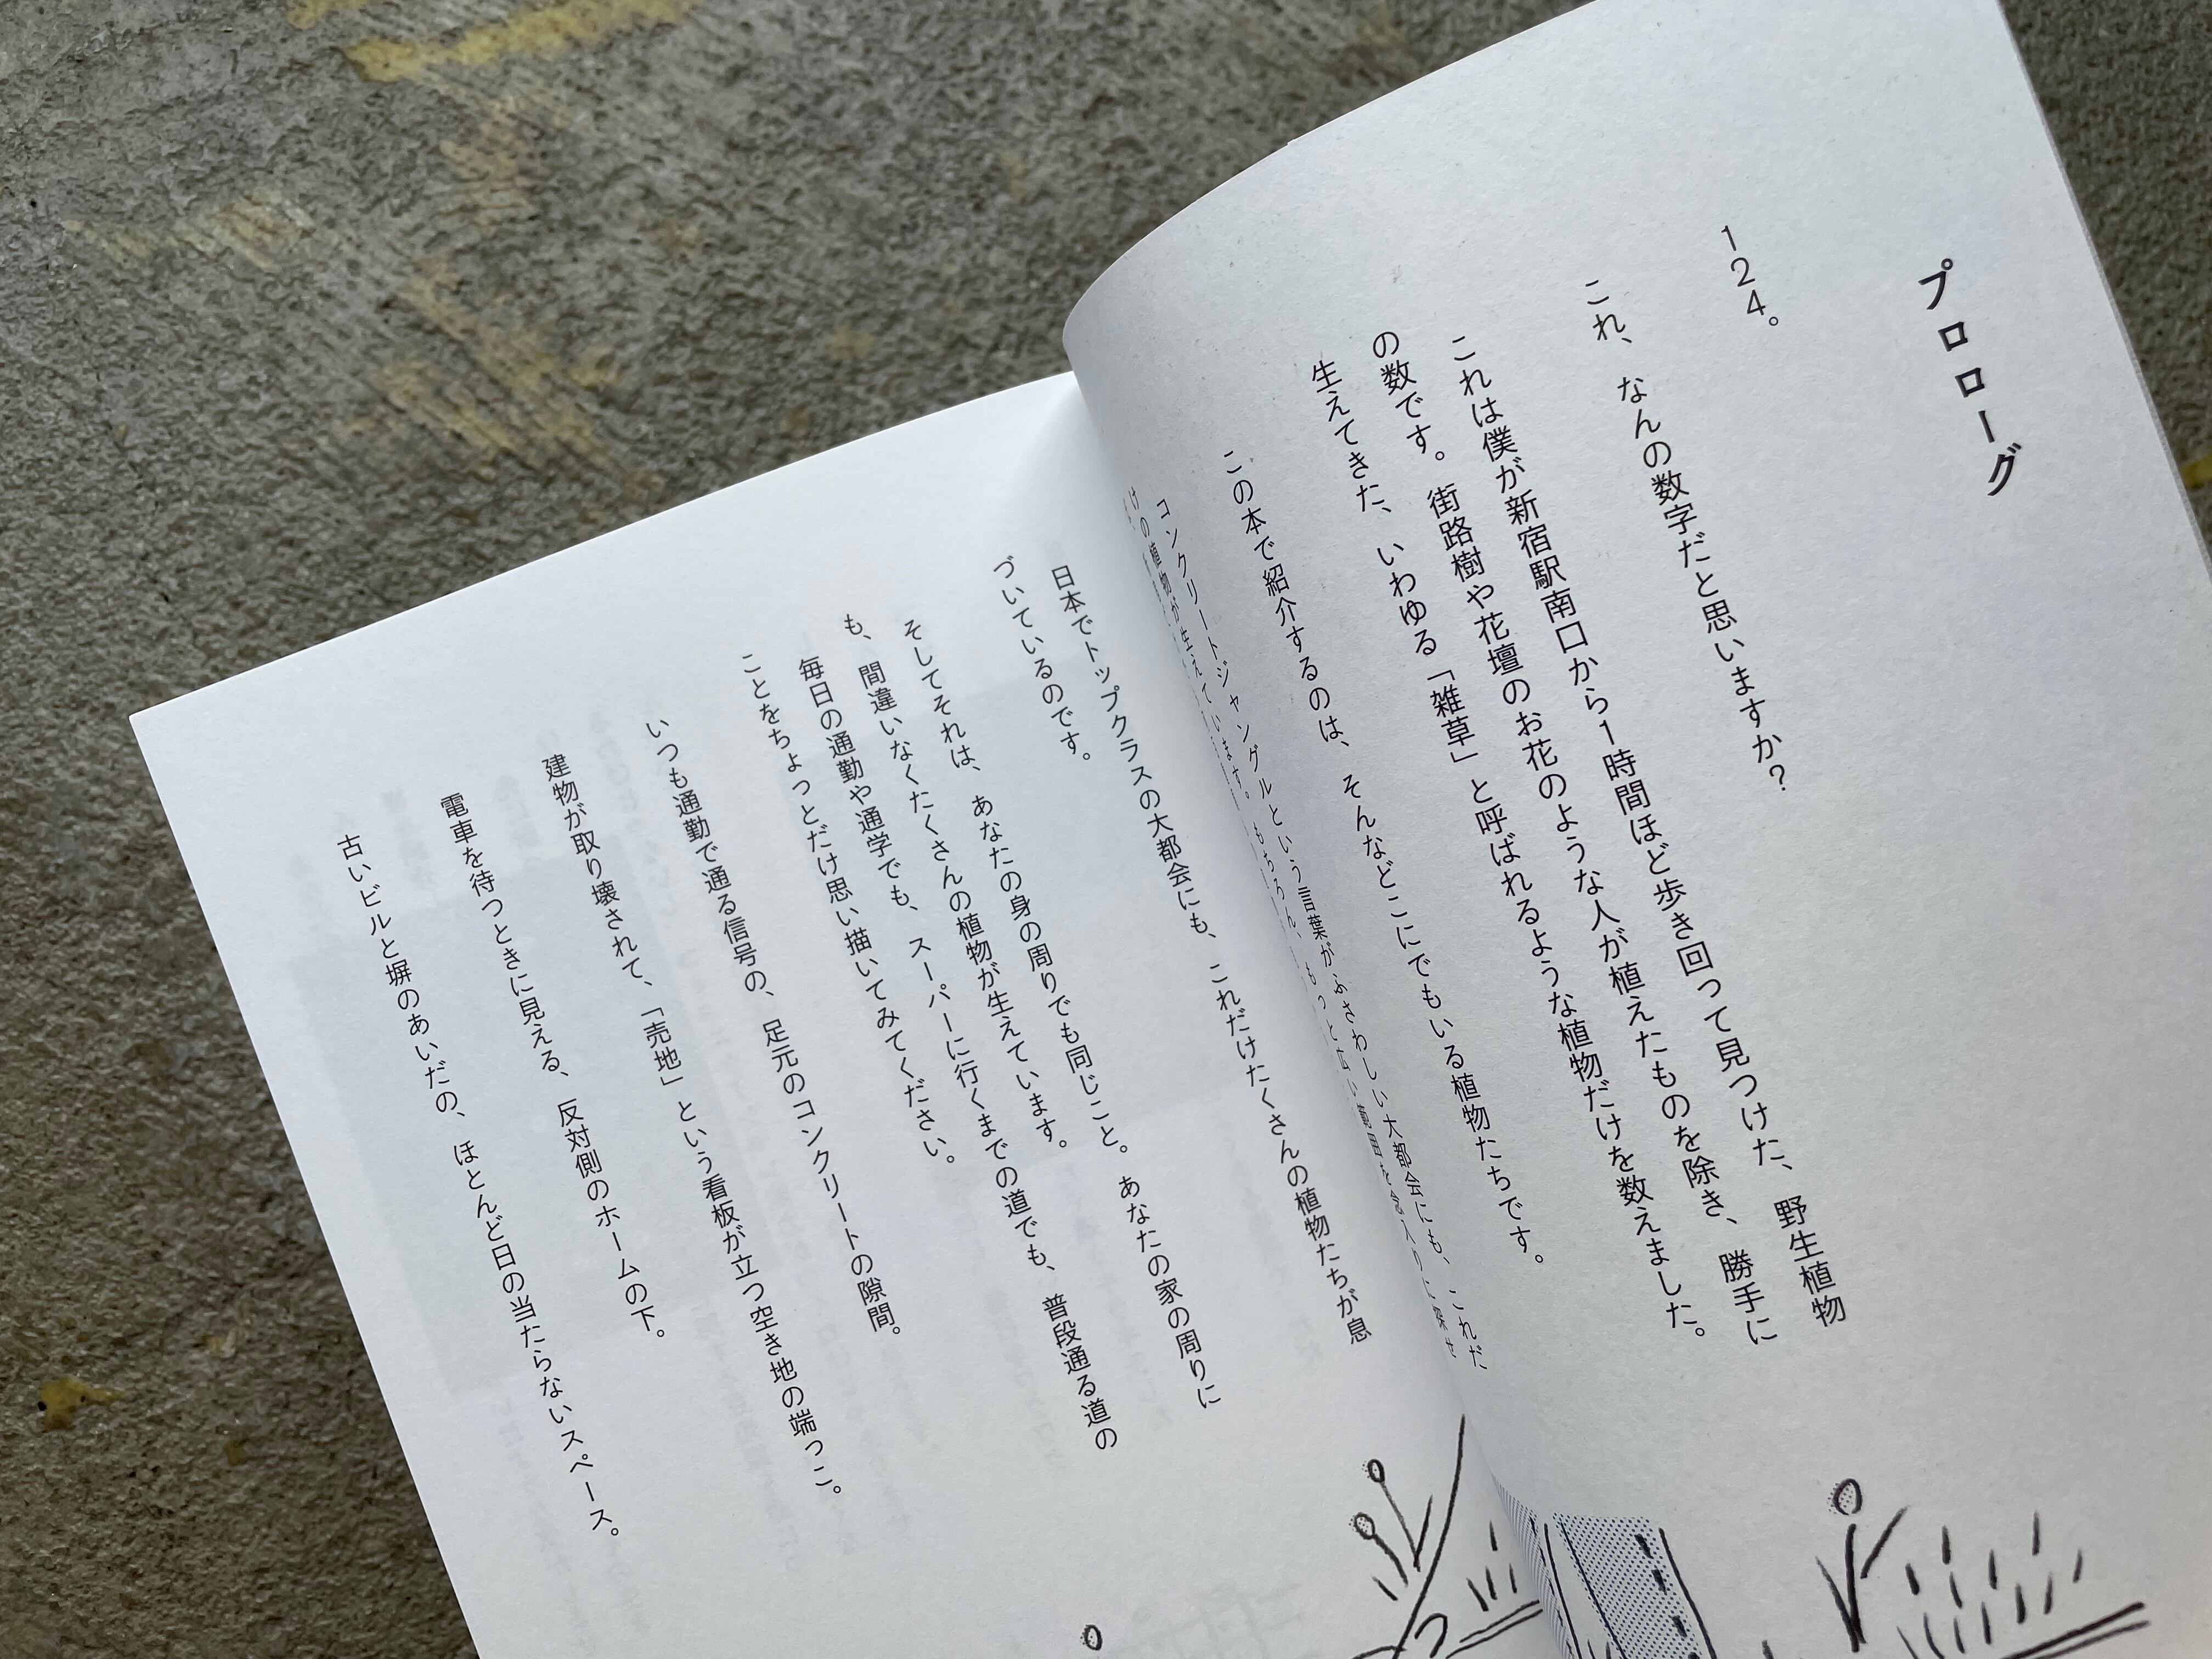 プロローグ
124。
これ、なんの数字だと思いますか?
これは僕が新宿駅南口から1時間ほど歩き回って見つけた、野生植物
の数です。街路樹や花壇のお花のような人が植えたものを除き、勝手に
生えてきた、いわゆる「雑草」と呼ばれるような植物だけを数えました。
この本で紹介するのは、そんなどこにでもいる植物たちです。
コンクリートジャングルという言葉がふさわしい大都会にも、これだ
けの植物が生えています。もちろん、もっと広い範囲を念入りに探せ
日本でトップクラスの大都会にも、これだけたくさんの植物たちが息
づいているのです。
そしてそれは、あなたの身の周りでも同じこと。あなたの家の周りに
も、間違いなくたくさんの植物が生えています。
毎日の通勤や通学でも、スーパーに行くまでの道でも、普段通る道の
ことをちょっとだけ思い描いてみてください。
いつも通勤で通る信号の、足元のコンクリートの隙間。
建物が取り壊されて、「売地」という看板が立つ空き地の端っこ。
電車を待つときに見える、反対側のホームの下。
古いビルと塀のあいだの、ほとんど日の当たらないスペース。